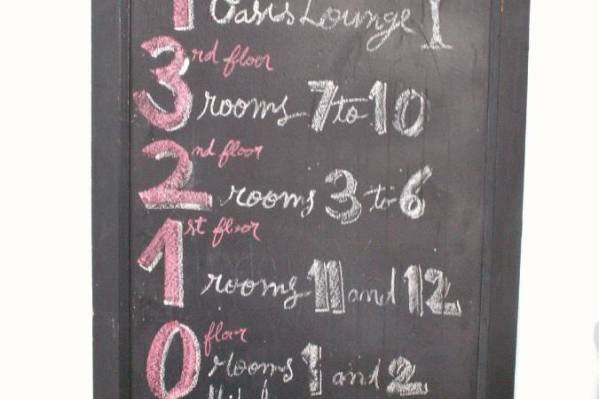 Oasis Lounge
3rd floor
rooms 7 to 10
2nd floor
rooms 3 to 6
1st floor
rooms 11 and 12
0 floor
rooms 1 and 2